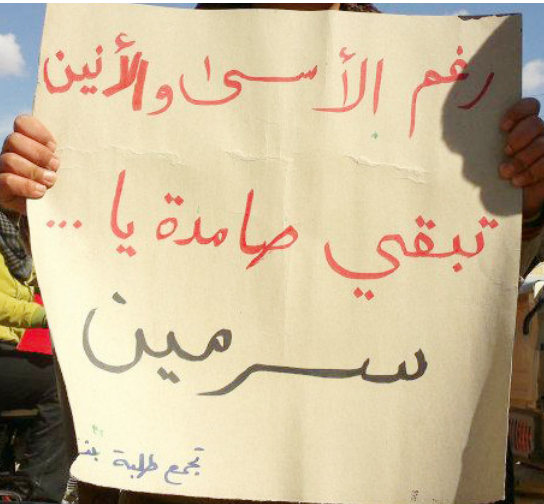 رغم الأسى والأنين
تبقي صامدة يا ...
سرمين
تجمع طلبة